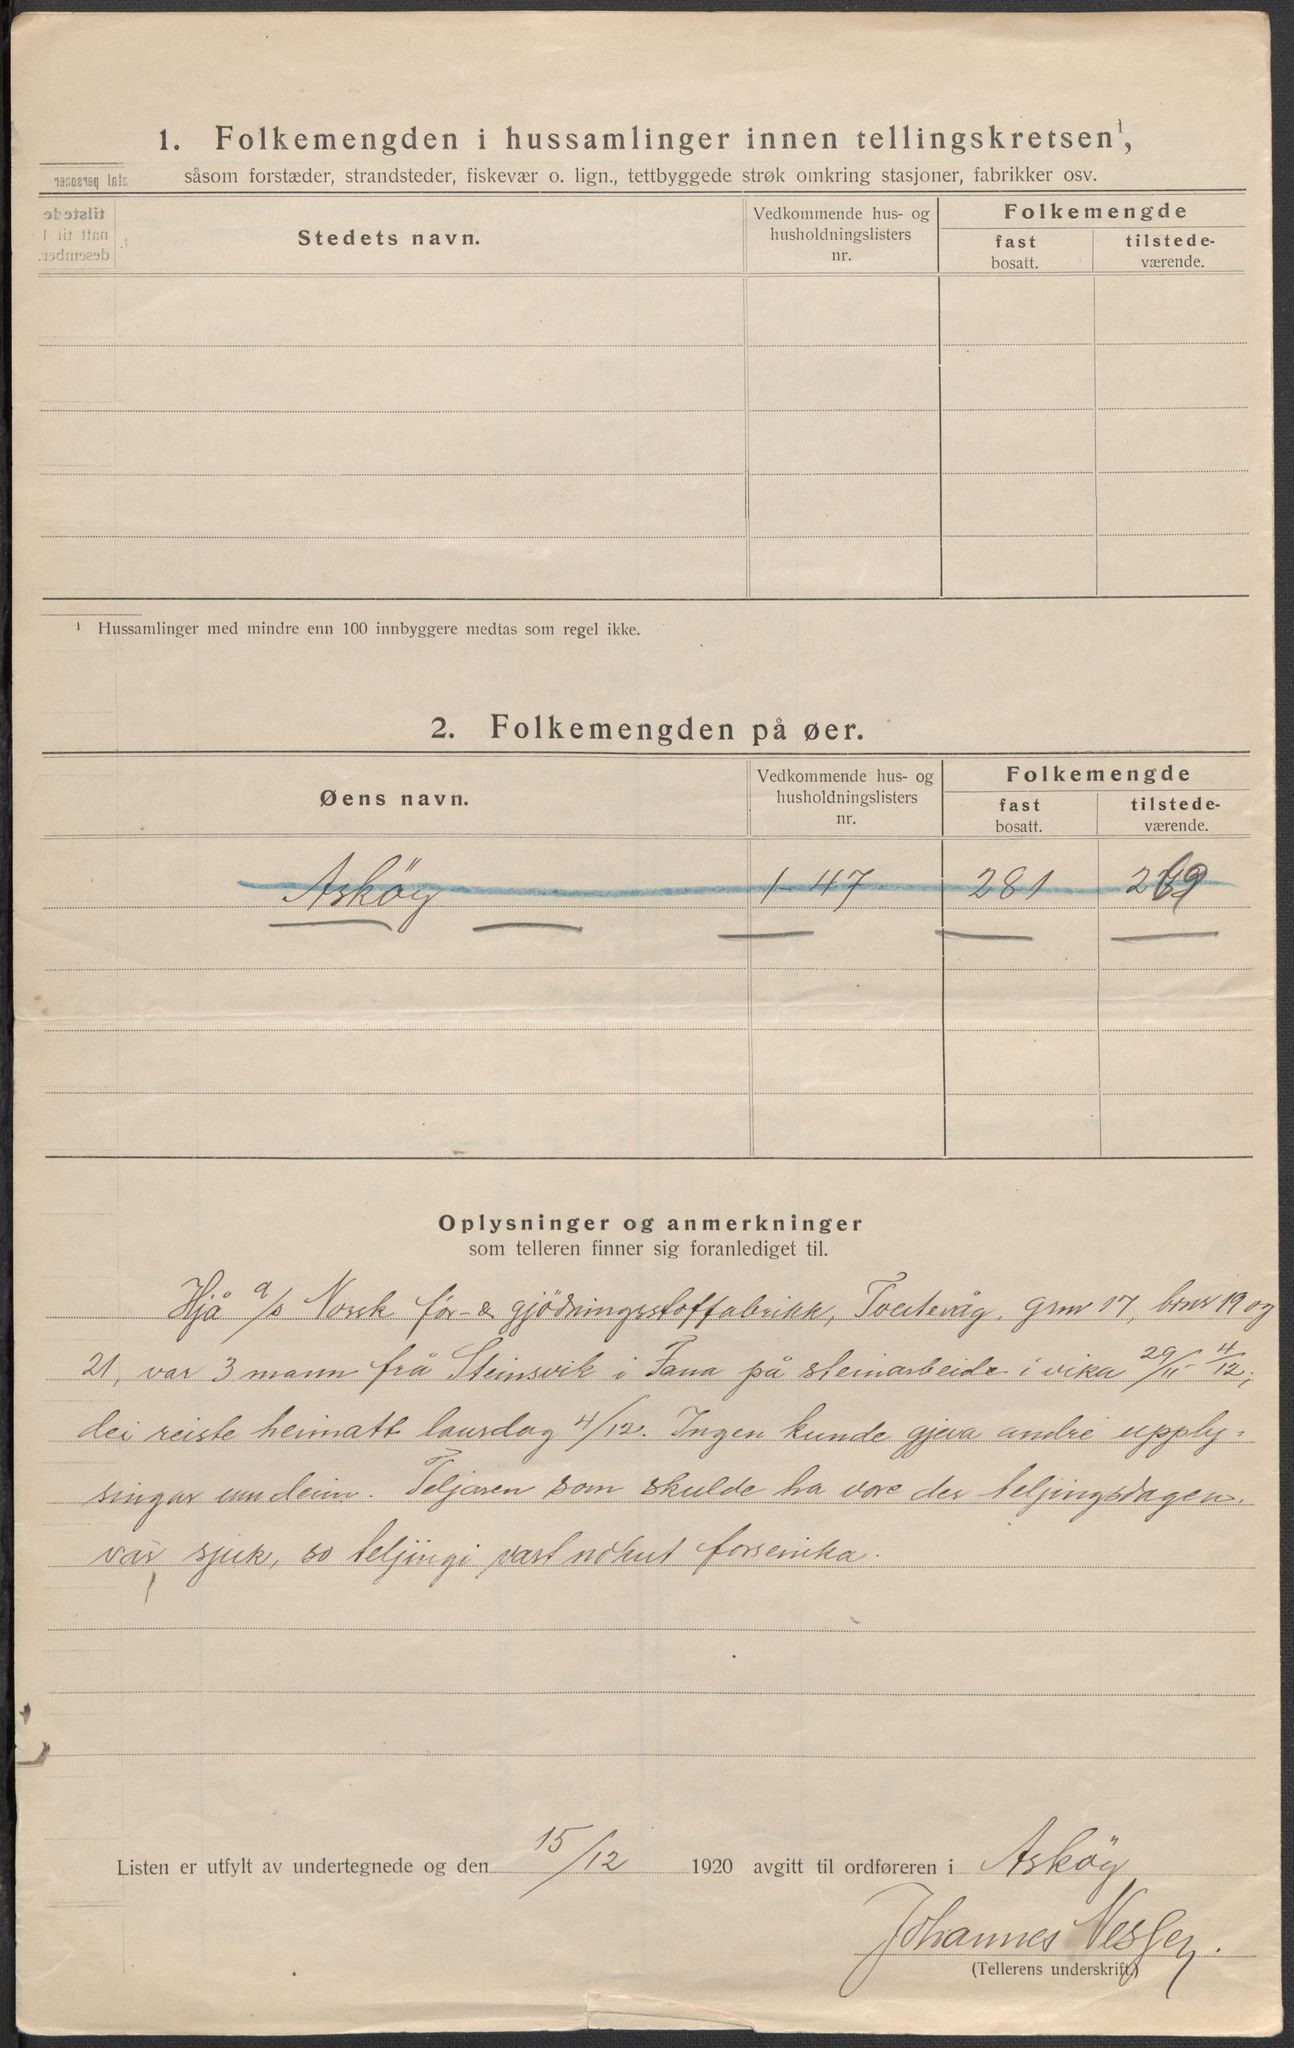 1. Folkemengden i hussamlinger innen tellingskretsen¹,
såsom forstæder, strandsteder, fiskevær o. lign., tettbyggede strøk omkring stasjoner, fabrikker osv.
Stedets navn.
Vedkommende hus- og husholdningslisters nr.
Folkemengde
fast bosatt.
tilstede-værende.
¹ Hussamlinger med mindre enn 100 innbyggere medtas som regel ikke.
2. Folkemengden på øer.
Øens navn.
Vedkommende hus- og husholdningslisters nr.
Folkemengde
fast bosatt.
tilstede-værende.
Asköy 1-47 281 269
Oplysninger og anmerkninger
som telleren finner sig foranlediget til.
Hjå a/s Norsk før- & gjödningsstoffabrikk, Tveitevåg, grnr 17, brnr 19 og
21, var 3 mann frå Steinsvik i Fana på steinarbeide i vika 29/11 - 4/12;
dei reiste heimatt laurdag 4/12. Ingen kunde gjeva andre upply-
singar um deim. Teljaren som skulde ha vore der teljingsdagen,
var sjuk, so teljingi vart nokut forseinka.
Listen er utfylt av undertegnede og den 15/12 1920 avgitt til ordføreren i Asköy
Johannes
(Tellerens underskrift.)